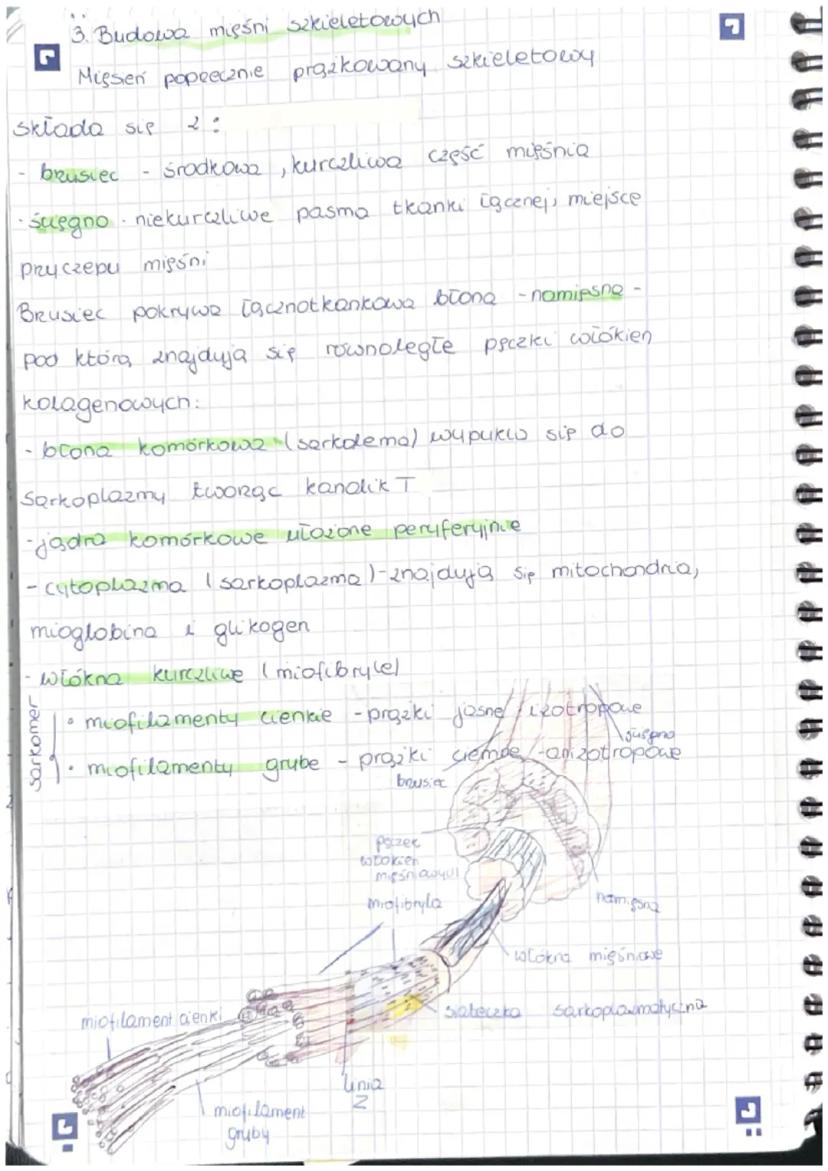 3. Budowa mięśni szkieletowych
Mięsień poprzecznie prążkowany szkieletowy
składa się z:
- brzusiec - środkowa, kurczliwa część mięśnia
- ścięgno - niekurczliwe pasma tkanki łącznej, miejsce
przyczepu mięśni
Brzusiec pokrywa łącznotkankowa błona - namięsna -
pod którą znajdują się równoległe pęczki włókien
kolagenowych:
- błona komórkowa (sarkolema) wypukla się do
sarkoplazmy tworząc kanalik T
- jądra komórkowe ułożone peryferyjnie
- cytoplazma (sarkoplazma) - znajdują się mitochondria,
mioglobina i glikogen
- włókna kurczliwe (miofibryle)
sarkomer
• miofilamenty cienkie - prążki jasne / izotropowe
• miofilamenty grube - prążki ciemne / -anizotropowe
ścięgno
brzusiec
pęczek
włókien
mięśniowych
namięsna
miofibryla
włókno mięśniowe
siateczka sarkoplazmatyczna
miofilament cienki
linia
Z
miofilament
gruby